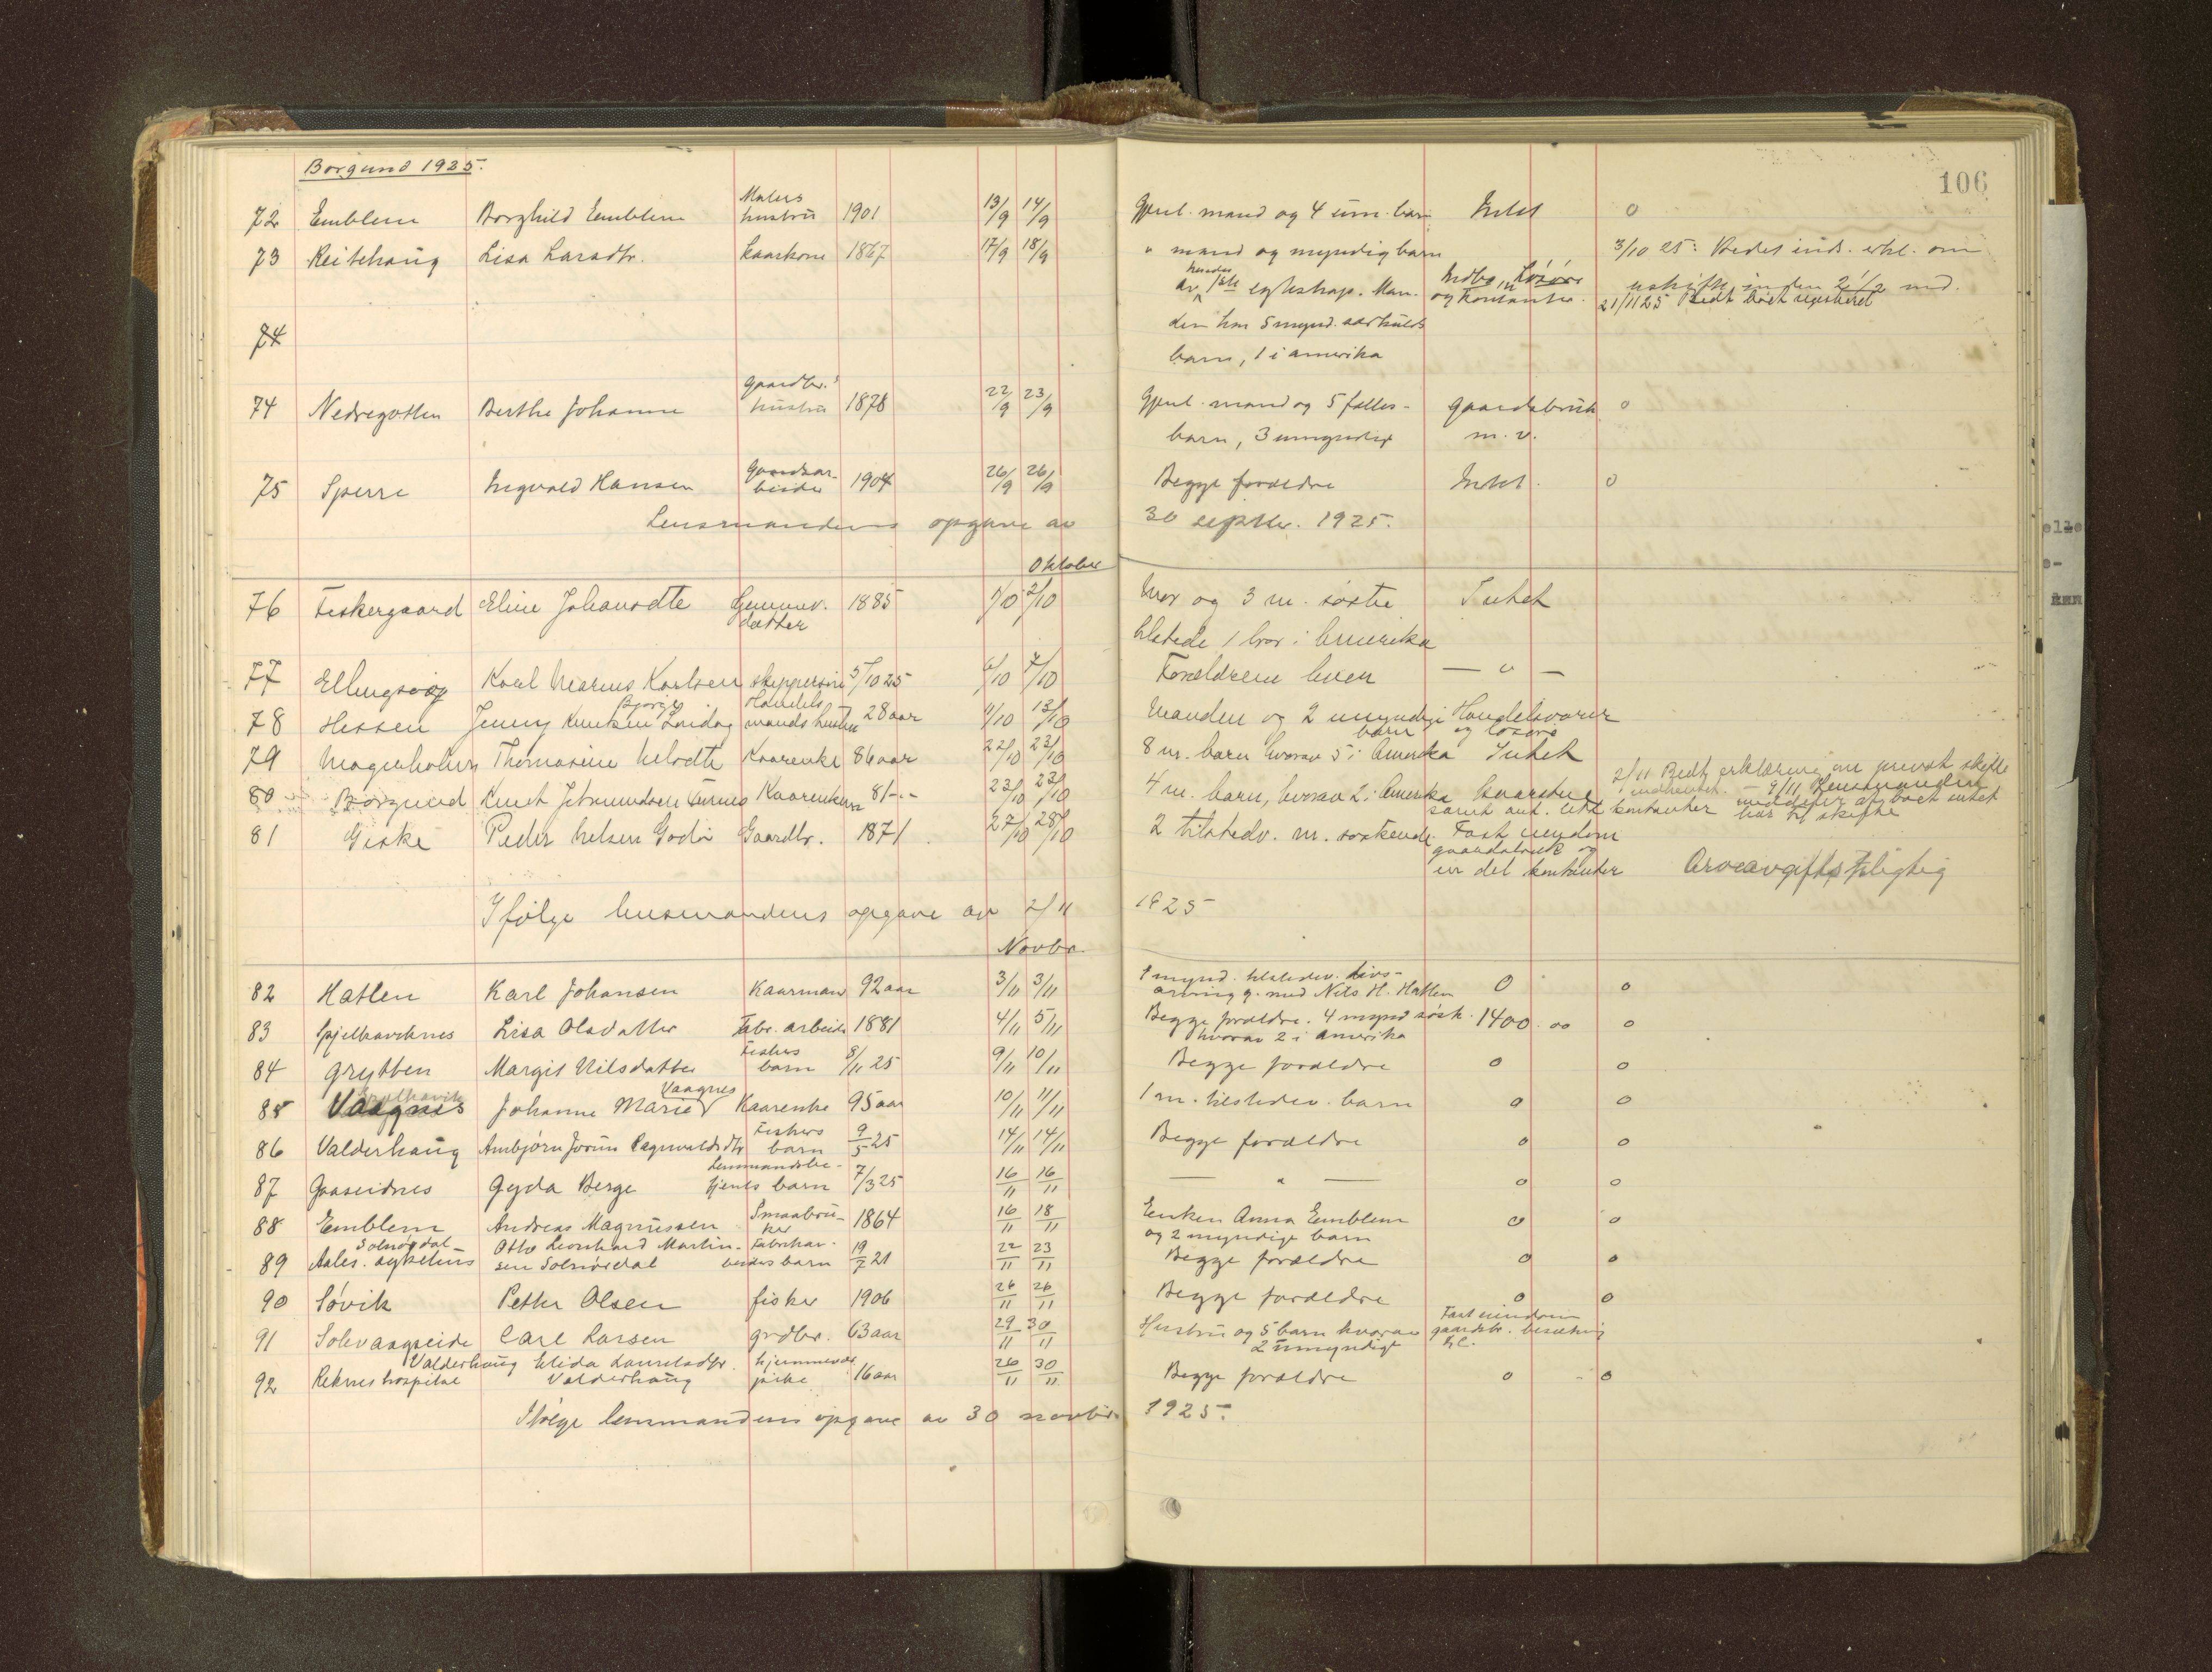 Borgund 1925.
106
72 Emblem Borghild Emblem Malers hustru 1901 13/9 14/9 Gjenl. mand og 4 um. barn Intet o
73 Reitehaug Lisa Larsdtr. Kaarkone 1867 17/9 18/9 " mand og myndig barn 3/10 25: Bedes inds. erkl. om
av hendes 1ste egteskap. Man- Indbo, Løsøre og kontanter. uskifte inden 2 1/2 md.
21/11 25 Bedt boet registreret
74 den har 5 mynd. barn, 1 i amerika
74 Nedregotten Berthe Johanne Gaardbr. hustru 1878 22/9 23/9 Gjenl. mand og 5 fælles- gaardsbruk o
barn, 3 umyndige m. v.
75 Sperre Ingvald Hansen Gaardsar- beider 1904 26/9 26/9 Begge forældre Intet o
Lensmandens opgave av 30 septbr. 1925.
Oktober
76 Fiskergaard Eline Johansdtr Hjemmev. datter 1885 1/10 2/10 Mor og 3 m. søstre Intet
tilstede 1 bror i Amerika
77 Ellingsøy Karl Marius Karlsen skippersøn 5/10 25 6/10 7/10 Forældrene lever — " —
78 Hessen Jenny Knutsen Handels mands hustru 28 aar 11/10 13/10 Manden og 2 umyndige barn Handelsvarer og løsøre
79 Magerholm Thomasine Nilsdtr Kaarenke 86 aar 22/10 23/10 8 m. barn hvorav 5 i Amerika Intet
80 Borgund Knut Jetmundsen 81 -"- 23/10 23/10 4 m. barn, hvorav 2 i Amerika 2/11 Bedt erklæring om privat skifte
indhentet. — 9/11 Lensmanden
samt ant. litt kontanter meddeler at boet intet har til skifte
81 Giske Peder Nelsen Godø Gaardbr. 1871 27/10 28/10 2 tilstedv. m. søskende Fast eiendom
gaardsbruk og
en del kontanter Arveavgiftspligtig
Ifølge lensmandens opgave av 2/11 1925
Novbr.
82 Hatlen Karl Johansen Kaarmand 92 aar 3/11 3/11 1 mynd. tilstedev. livs-
arving g. med Nils H. Hatlen 0 o
83 Spjelkaviknes Lisa Olsdatter Fabr. arbeider 1881 4/11 5/11 Begge forældre. 4 mynd søsk. 1400.00 o
hvorav 2 i Amerika
84 Grytten Margit Nilsdatter Fiskers barn 8/11 25 9/11 10/11 Begge forældre o o
85 Vaagnes Johanne Marie Vaagnes Kaarenke 95 aar 10/11 11/11 1 m. tilstedev. barn o o
86 Valderhaug Arnbjørn Jorun Ragnvaldsdtr Fiskers barn 9/5 25 14/11 14/11 Begge forældre o o
87 Gaaseidnes Gyda Berge Lensmandsbe- tjents barn 7/3 25 16/11 16/11 — " — o o
88 Emblem Andreas Magnussen Smaabru- ker 1864 16/11 18/11 Enken Anna Emblem
og 2 myndige barn o o
89 Solnørdal Aales. sykehus Otto Leonhard Martin- sen Solnørdal Fabrikar- beiders barn 19/7 21 22/11 23/11 Begge forældre o o
90 Søvik Petter Olsen fisker 1906 26/11 26/11 Begge forældre o o
91 Solevaagseide Carl Larsen grdbr. 63 aar 29/11 30/11 Hustru og 5 barn hvorav
2 umyndige Fast eiendom gaardsbr. besætning
92 Valderhaug Reknes hospital Elida Lauritsdtr. Valderhaug hjemmevær. pike 16 aar 26/11 30/11 Begge forældre o o
Ifølge lensmandens opgave av 30 novbr. 1925.